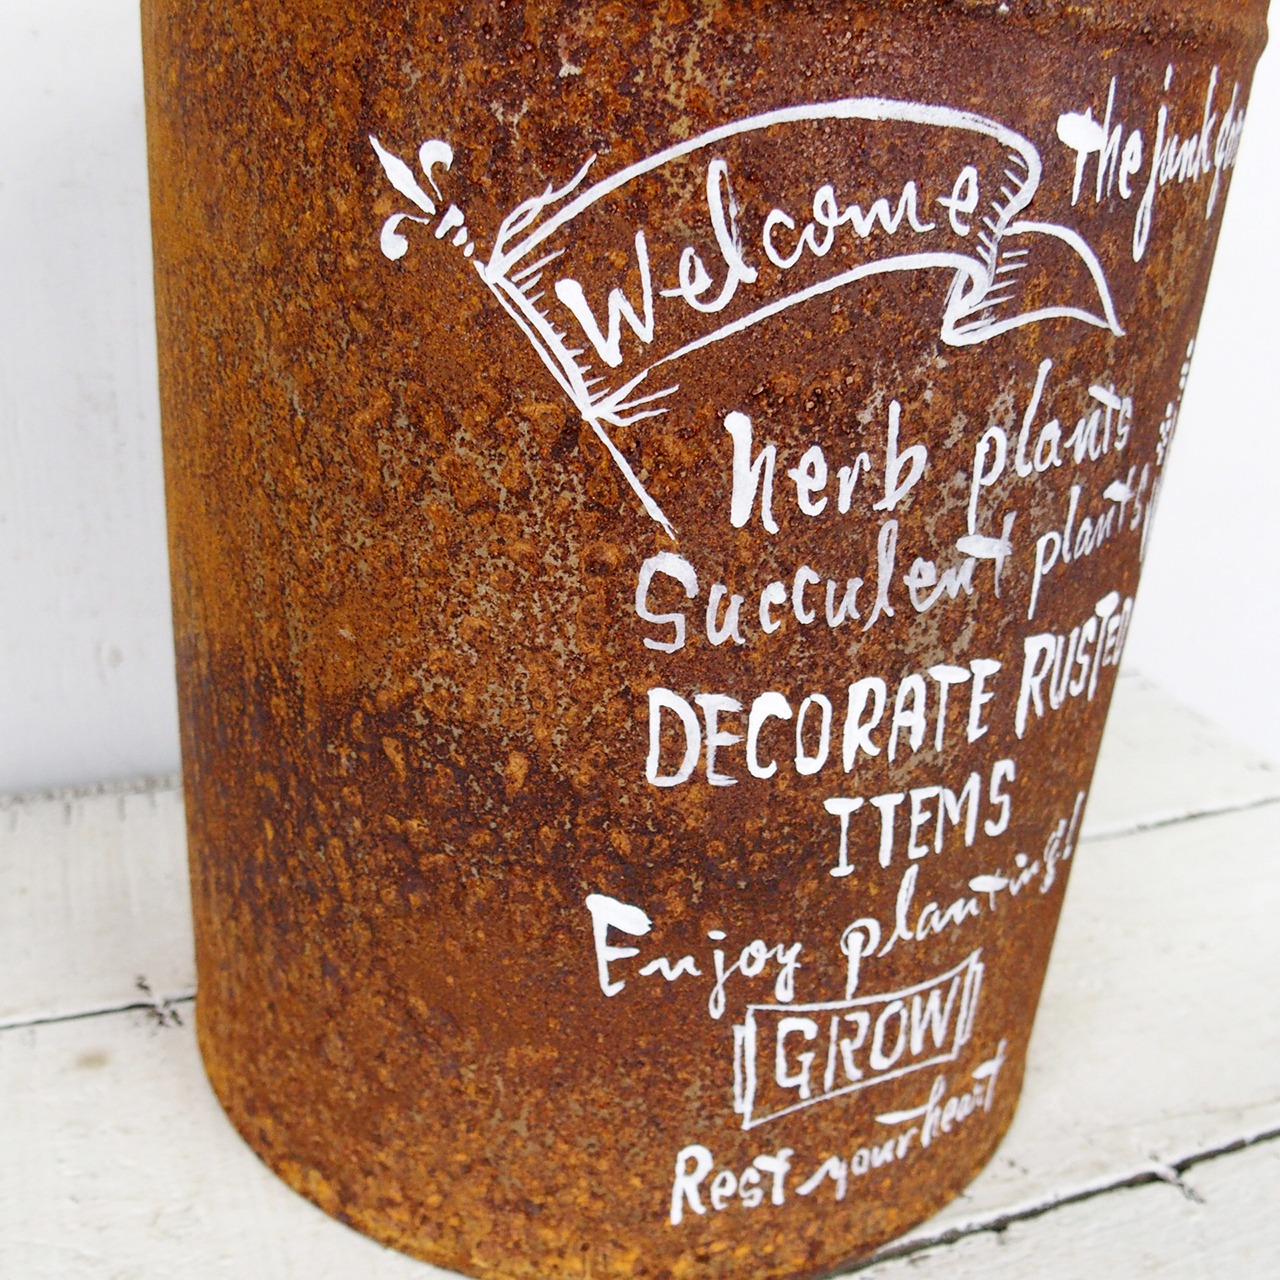 Welcome
The junk
herb plants
Succulent plants
DECORATE RUSTED
ITEMS
Enjoy planting!
GROW
Rest your heart